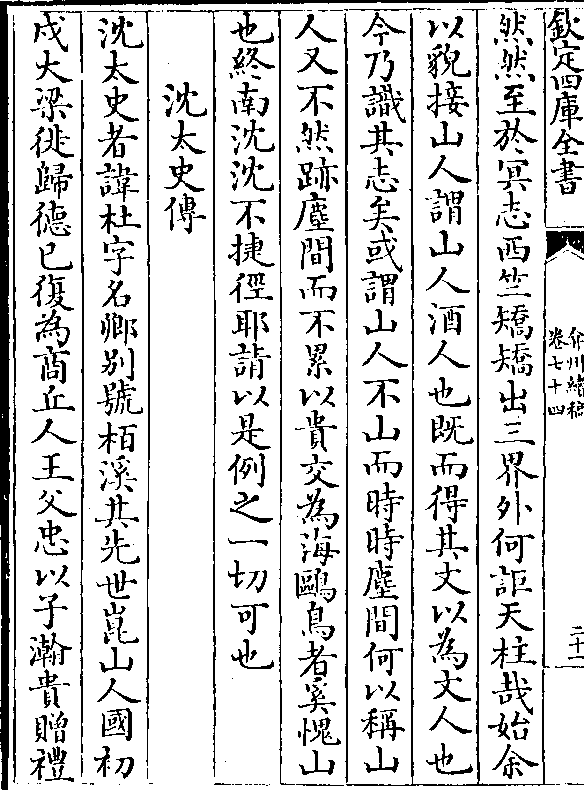 欽定四庫全書
弇州續稿
卷七十四
二十一
然然至於冥志西竺矯矯出三界外何詎天柱哉始余
以貌接山人謂山人酒人也既而得其文以為文人也
今乃識其志矣或謂山人不山而時時塵間何以稱山
人又不然跡塵間而不累以貴交為海鷗鳥者奚愧山
也終南沈沈不捷徑耶請以是例之一切可也
沈太史傳
沈太史者諱杜字名卿别號栢溪其先世崑山人國初
戍大梁徙歸德已復為商丘人王父忠以子瀚貴贈禮